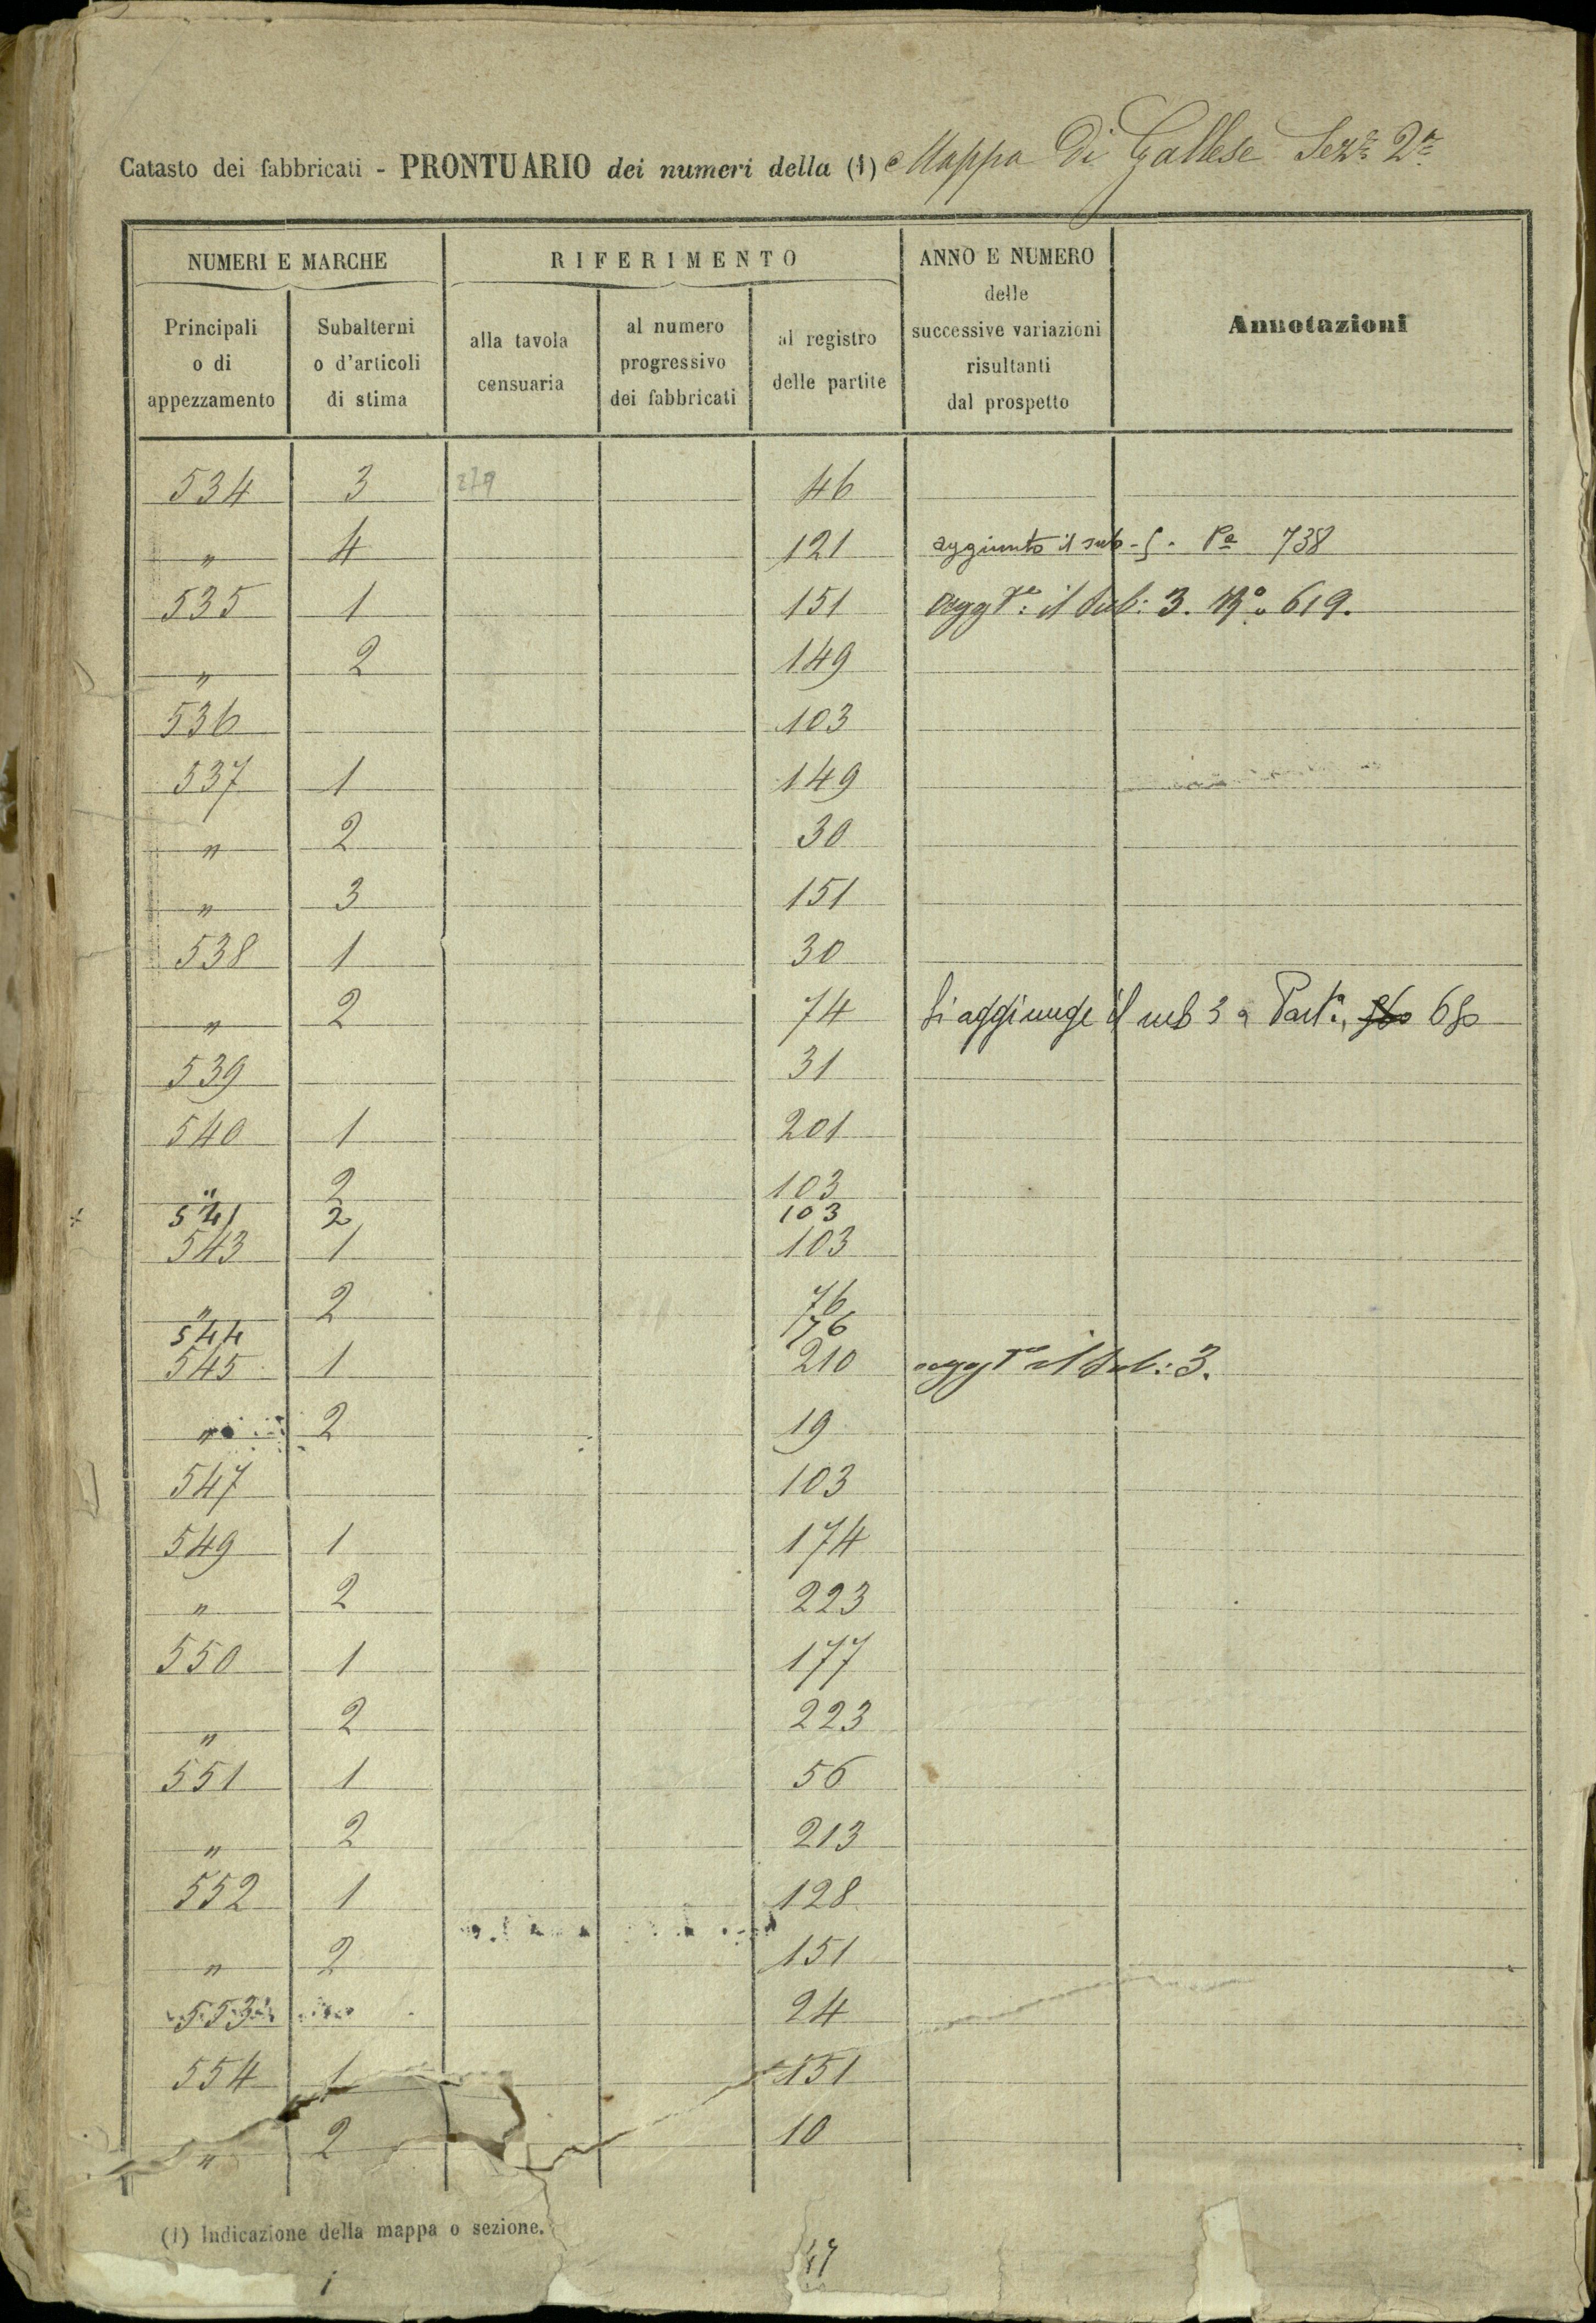 Catasto dei fabbricati - PRONTUARIO dei numeri della (1) Mappa Di Gallese Sez.e 2.a
NUMERI E MARCHE
RIFERIMENTO
ANNO E NUMERO
delle
successive variazioni
risultanti
dal prospetto
Annotazioni
Principali
o di
appezzamento
Subalterni
o d'articoli
di stima
alla tavola
censuaria
al numero
progressivo
dei fabbricati
al registro
delle partite
534 3 279 46
" 4 121 aggiunto il sub - 5 - Pa 738
535 1 151 aggto: il Sub: 3. No. 619.
" 2 149
536 103
537 1 149
" 2 30
" 3 151
538 1 30
" 2 74 Si aggiunge il sub 3 a Parta. 650
539 31
540 1 201
" 2 103
541 2 103
543 1 103
" 2 76
544 176
545 1 210 aggto il Sub: 3.
" 2 19
547 103
549 1 174
" 2 223
550 1 177
" 2 223
551 1 56
" 2 213
552 1 128
" 2 151
553 24
554 1 151
" 2 10
(1) Indicazione della mappa o sezione.